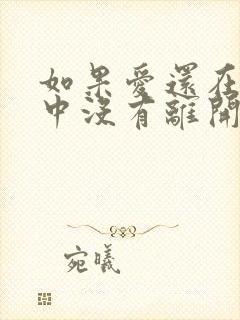 如果愛還在
中沒有離開
宛曦